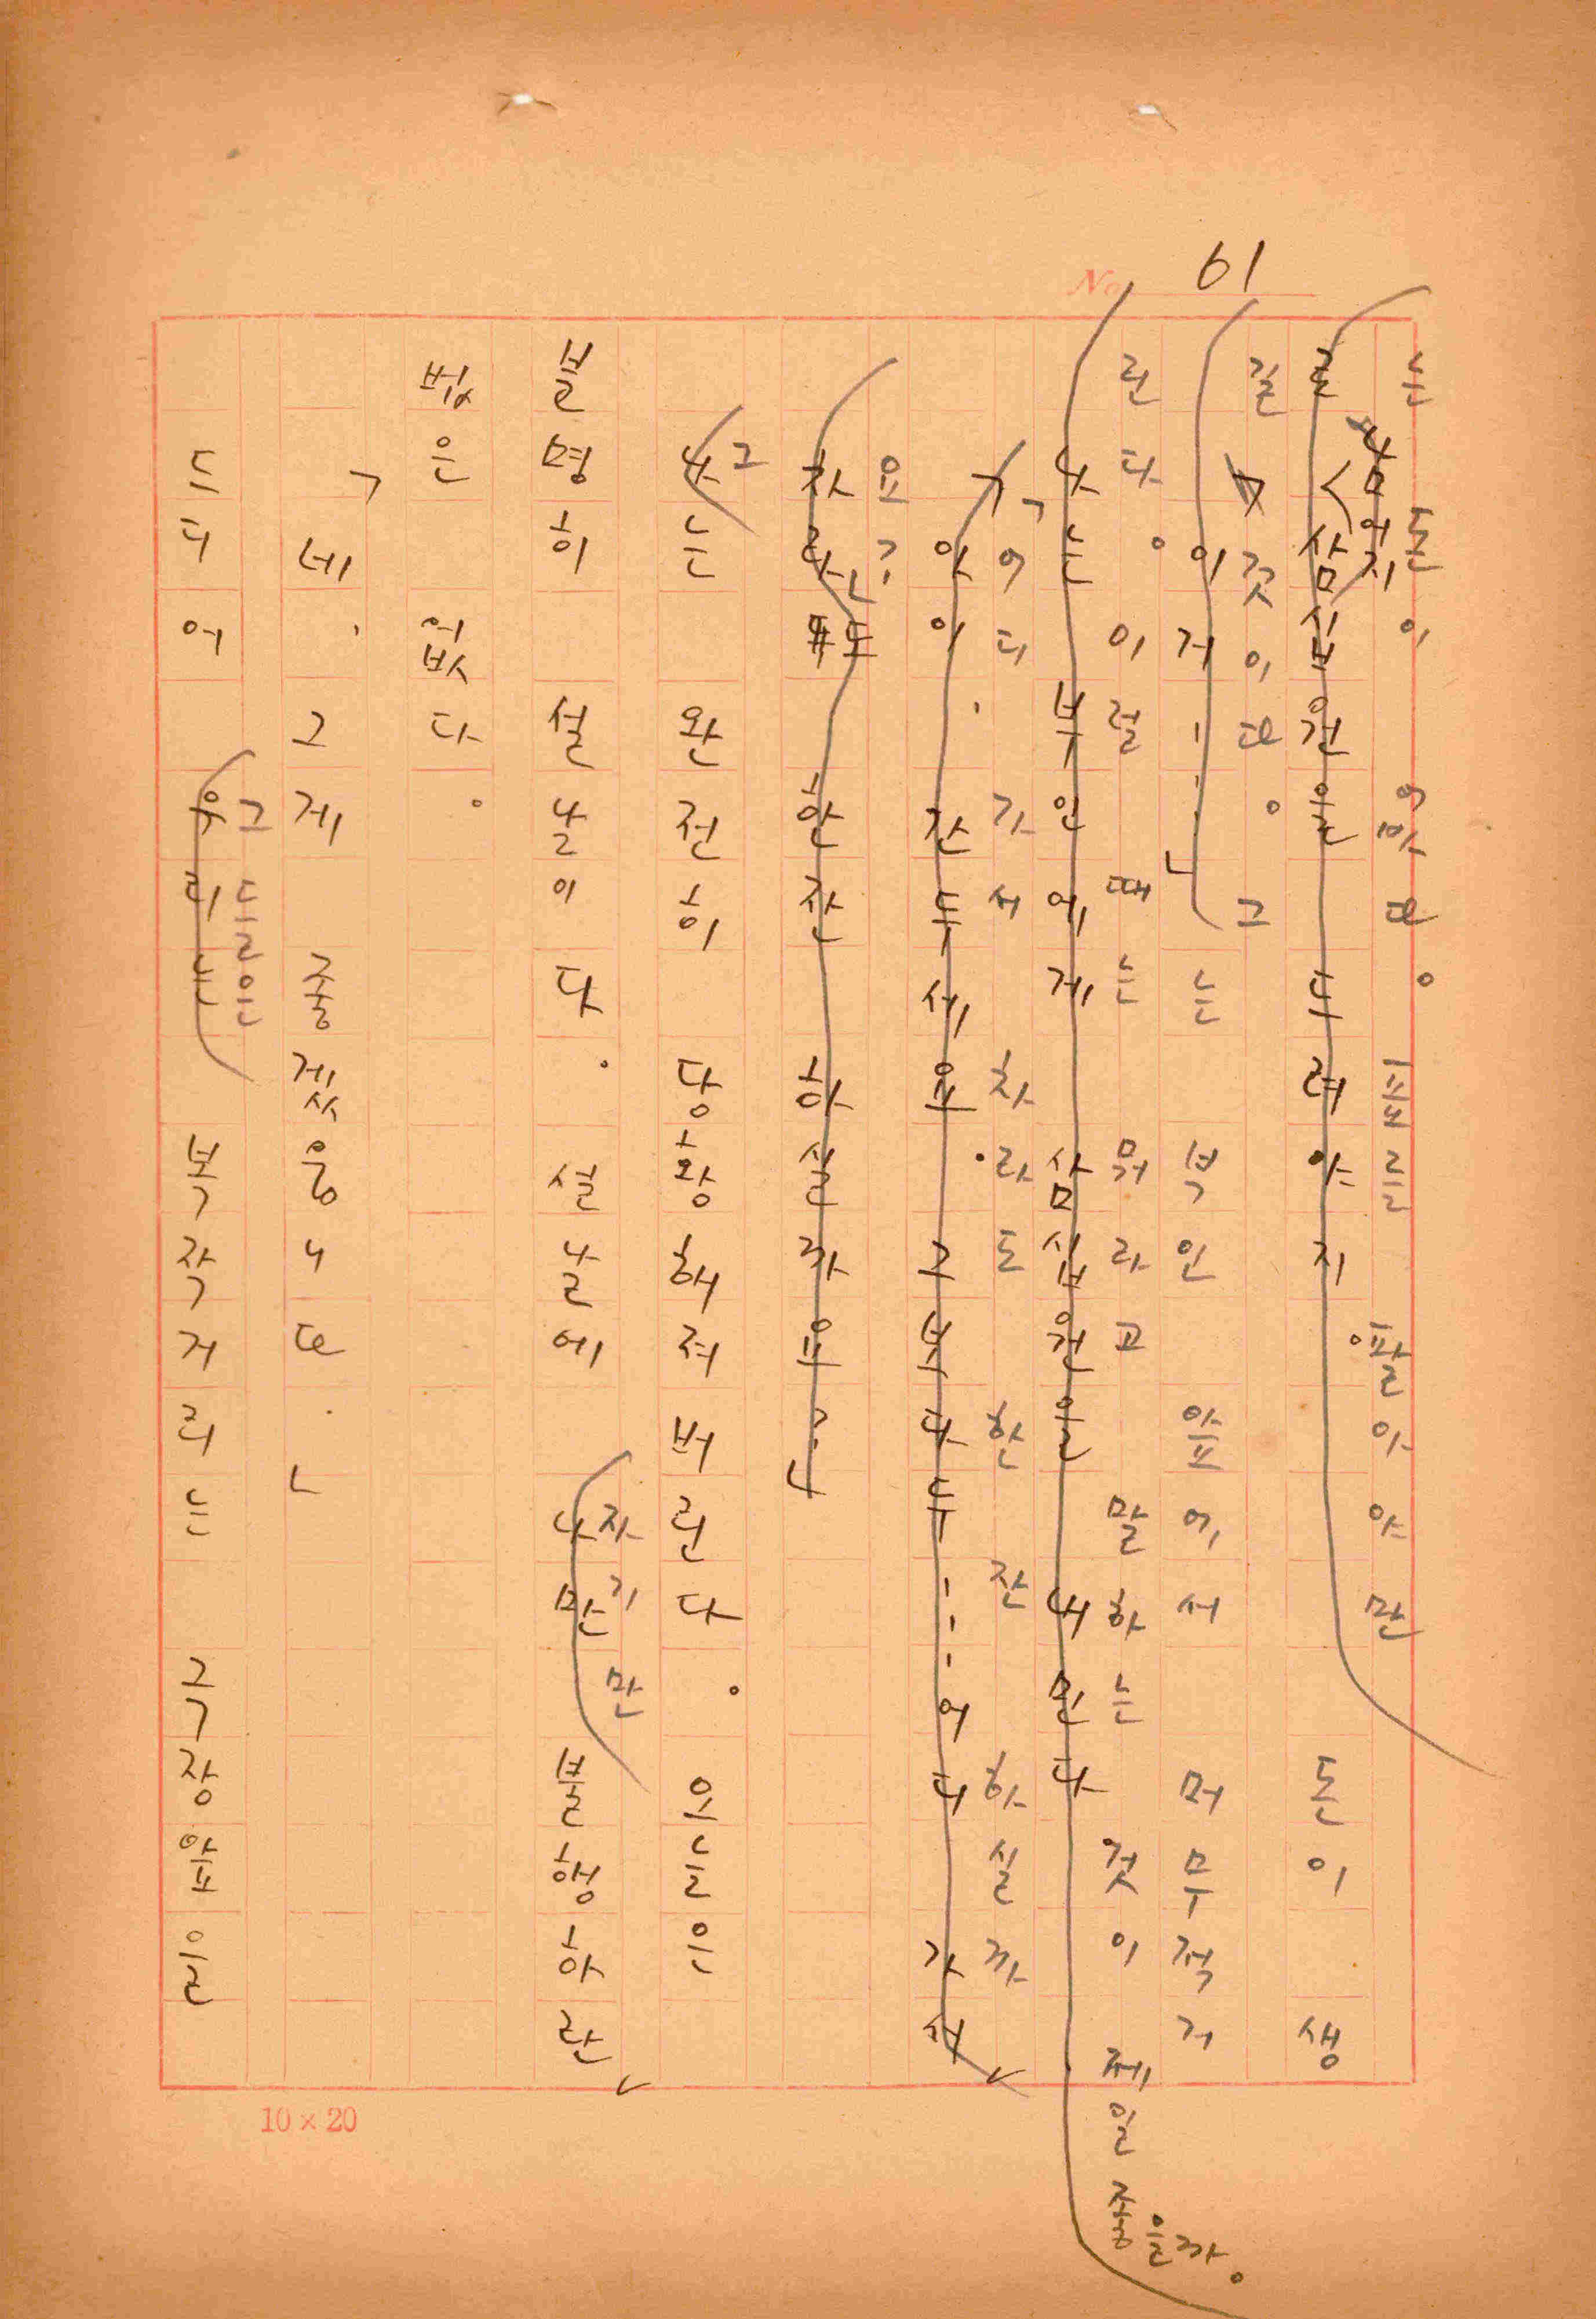 는 돈이 없다。 표를 팔아야만
남어지
금 삼십원을 드려야지 돈이 생
길 것이다。 그
이거……」 는 부인 앞에서 머무적거
린다。 이럴 때는 뭐라고 말하는 것이 제일 좋을까。
나는 부인에게 삼십원을 내민다
「어디 가서 차라도 한 잔 하실까
「아이, 간두세유. 그보다두……어디 가서
요?」
차라두 한잔 하실까유?」
그
나는 완전히 당황해져 버린다. 오늘은
자기만
분명히 설날이다. 설날에 나만 불행하란
법은 없다。
「네, 그게 좋겠읍니다.」
그들은
드디어 우리는 복작거리는 극장앞을
61
No.
10×20